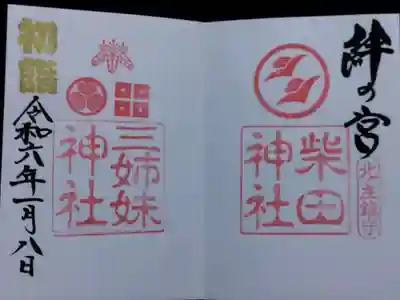 絆の宮
柴田
神社
北庄鎮守
初詣
三姉妹
神社
令和六年一月八日